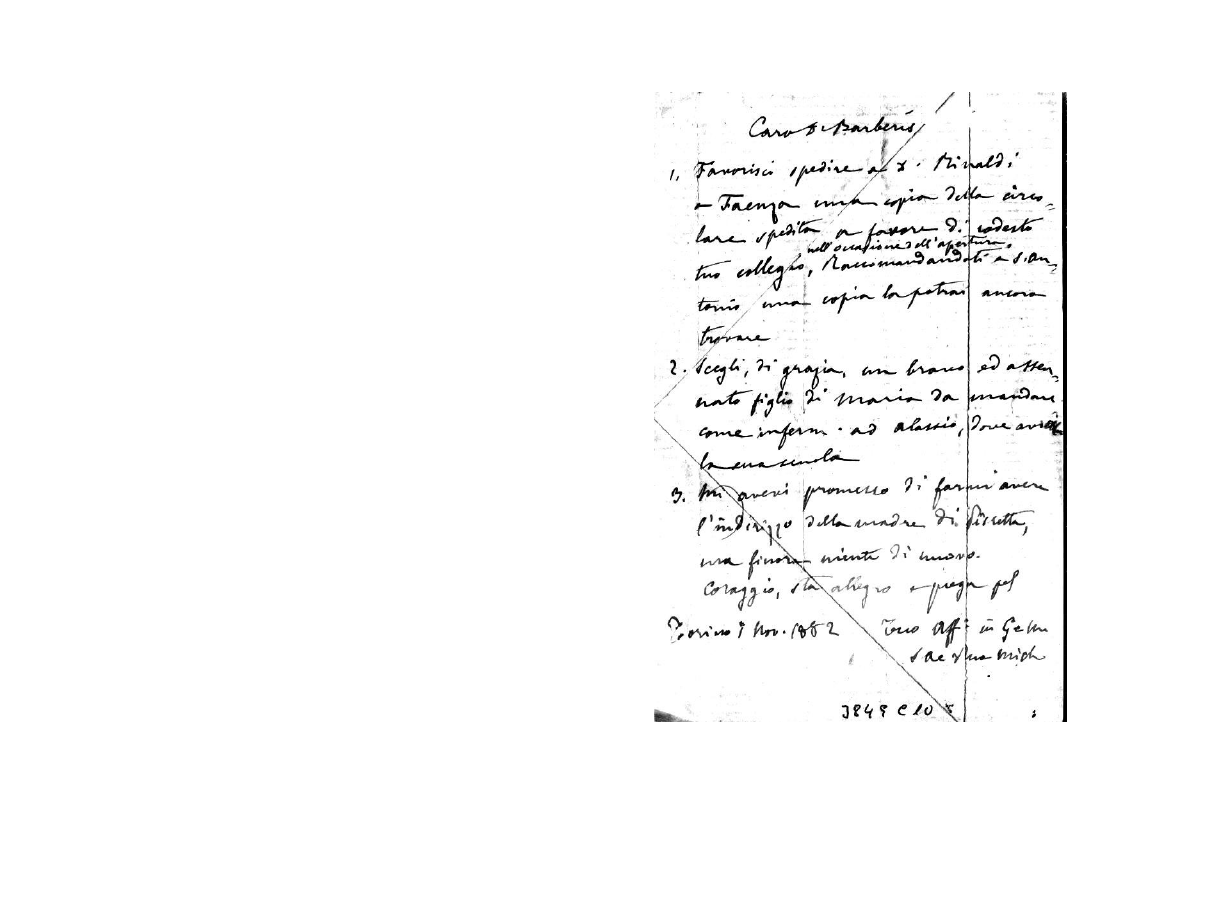 Caro D. Barberis
1. Favorisci spedire a D. Rinaldi
a Faenza una copia della circo-
lare spedita a favore di codesto
nell'occasione dell'apertura
tuo collegio, Raccomandandoti a S. An-
tonio una copia la potrai ancora
trovare
2. Scegli, di grazia, un bravo ed assen-
nato figlio di Maria da mandare
come inferm. ad Alassio, dove
la sua scuola
3. Mi avevi promesso di farmi avere
l'indirizzo della madre di
ma finora niente di nuovo.
Coraggio, sta allegro e prega pel
Torino 7 Nov. 1882 Tuo Aff. in Gesù
Sac Rua Mich
3849 C 10